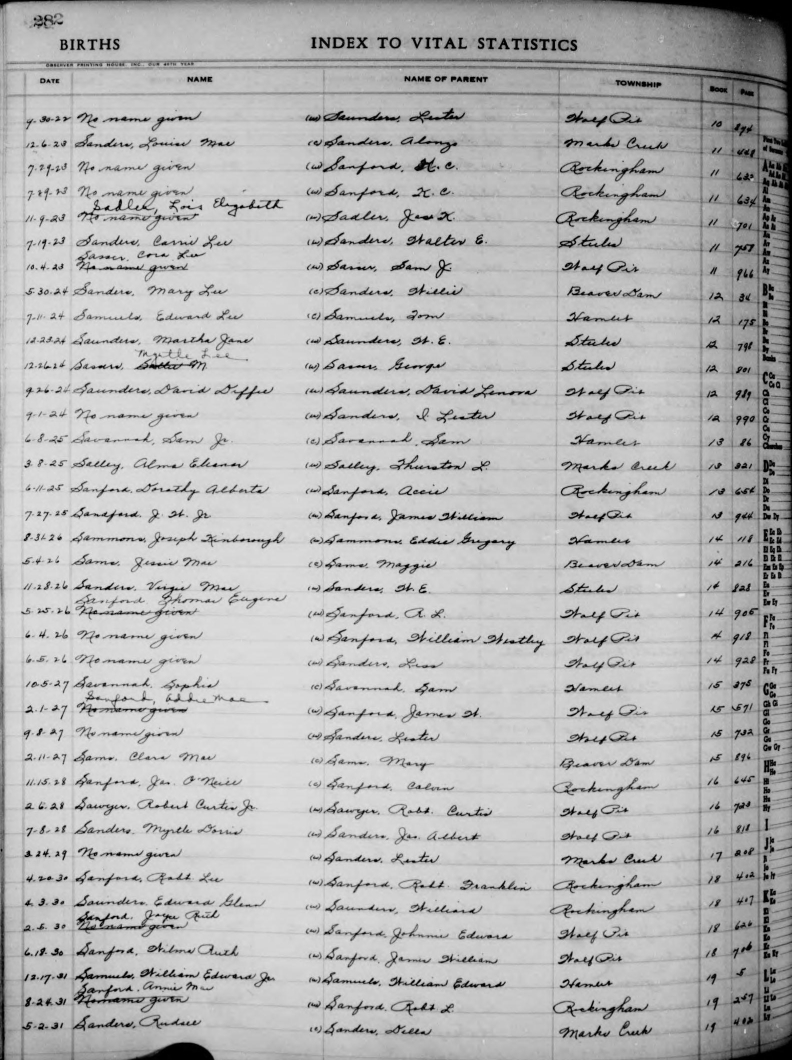 282
BIRTHS INDEX TO VITAL STATISTICS
OBSERVER PRINTING HOUSE, INC., OUR 40TH YEAR
DATE NAME NAME OF PARENT TOWNSHIP BOOK PAGE
9-30-22 No name given (w) Saunders, Lester Wolf Pit 10 894
12-6-23 Sanders, Louise Mae (c) Sanders, Alonzo Marks Creek 11 448
7-29-23 No name given (w) Sanford, K. C. Rockingham 11 633
7-29-23 No name given (w) Sanford, K. C. Rockingham 11 634
Sadler, Lois Elizabeth
11-9-23 No name given (w) Sadler, Jas K. Rockingham 11 701
7-19-23 Sanders, Carrie Lee (w) Sanders, Walter E. Steeles 11 758
Sasser, Cora Lee
10-4-23 No name given (w) Sasser, Sam J. Wolf Pit 11 966
5-30-24 Sanders, Mary Lee (c) Sanders, Willie Beaver Dam 12 34
7-11-24 Samuels, Edward Lee (c) Samuels, Tom Hamlet 12 175
12-23-24 Saunders, Martha Jane (w) Saunders, W. E. Steeles 12 798
Myrtle Lee
12-26-24 Sasser, M (w) Sasser, George Steeles 12 801
9-26-24 Saunders, David Deffee (w) Saunders, David Lenora Wolf Pit 12 989
9-1-24 No name given (w) Sanders, I Lester Wolf Pit 12 990
6-8-25 Savannah, Sam Jr. (c) Savannah, Sam Hamlet 13 86
3-8-25 Salley, Alma Eleanor (w) Salley, Thurston L. Marks Creek 13 321
6-11-25 Sanford, Dorothy Alberta (w) Sanford, Accie Rockingham 13 654
7-27-25 Sandford, J. W. Jr (w) Sanford, James William Wolf Pit 13 944
8-31-26 Sammons, Joseph Kinborough (w) Sammons, Eddie Gregory Hamlet 14 118
5-4-26 Sams, Jessie Mae (c) Sams, Maggie Beaver Dam 14 216
11-28-26 Sanders, Virgie Mae (w) Sanders, W. E. Steeles 14 828
Sanford Thomas Eugene
5-25-26 No name given (w) Sanford, R. L. Wolf Pit 14 905
6-4-26 No name given (w) Sanford, William Westley Wolf Pit 14 918
6-5-26 No name given (w) Sanders, Liss Wolf Pit 14 928
10-5-27 Savannah, Sophia (c) Savannah, Sam Hamlet 15 275
Sanford, Addie Mae
2-1-27 No name given (w) Sanford, James W. Wolf Pit 15 571
9-8-27 No name given (w) Sanders, Lester Wolf Pit 15 732
2-11-27 Sams, Clara Mae (c) Sams, Mary Beaver Dam 15 896
11-15-28 Sanford, Jas. O'Neill (c) Sanford, Calvin Rockingham 16 645
2-6-28 Sawyer, Robert Curtis Jr. (w) Sawyer, Robt. Curtis Wolf Pit 16 723
7-8-28 Sanders, Myrtle Dorris (w) Sanders, Jas. Albert Wolf Pit 16 818
3-24-29 No name given (w) Sanders, Lester Marks Creek 17 208
4-20-30 Sanford, Robt Lee (w) Sanford, Robt. Franklin Rockingham 18 402
6-3-30 Saunders, Edward Glenn (w) Saunders, Williard Rockingham 18 407
Sanford, Joyce Ruth
2-5-30 No name given (w) Sanford, Johnnie Edward Wolf Pit 18 620
6-18-30 Sanford, Wilma Ruth (w) Sanford, James William Wolf Pit 18 706
12-17-31 Samuels, William Edward Jr. (w) Samuels, William Edward Hamlet 19 5
Sanford, Annie Mae
8-24-31 No name given (w) Sanford, Robt L. Rockingham 19 257
5-2-31 Sanders, Rudsell (c) Sanders, Della Marks Creek 19 402